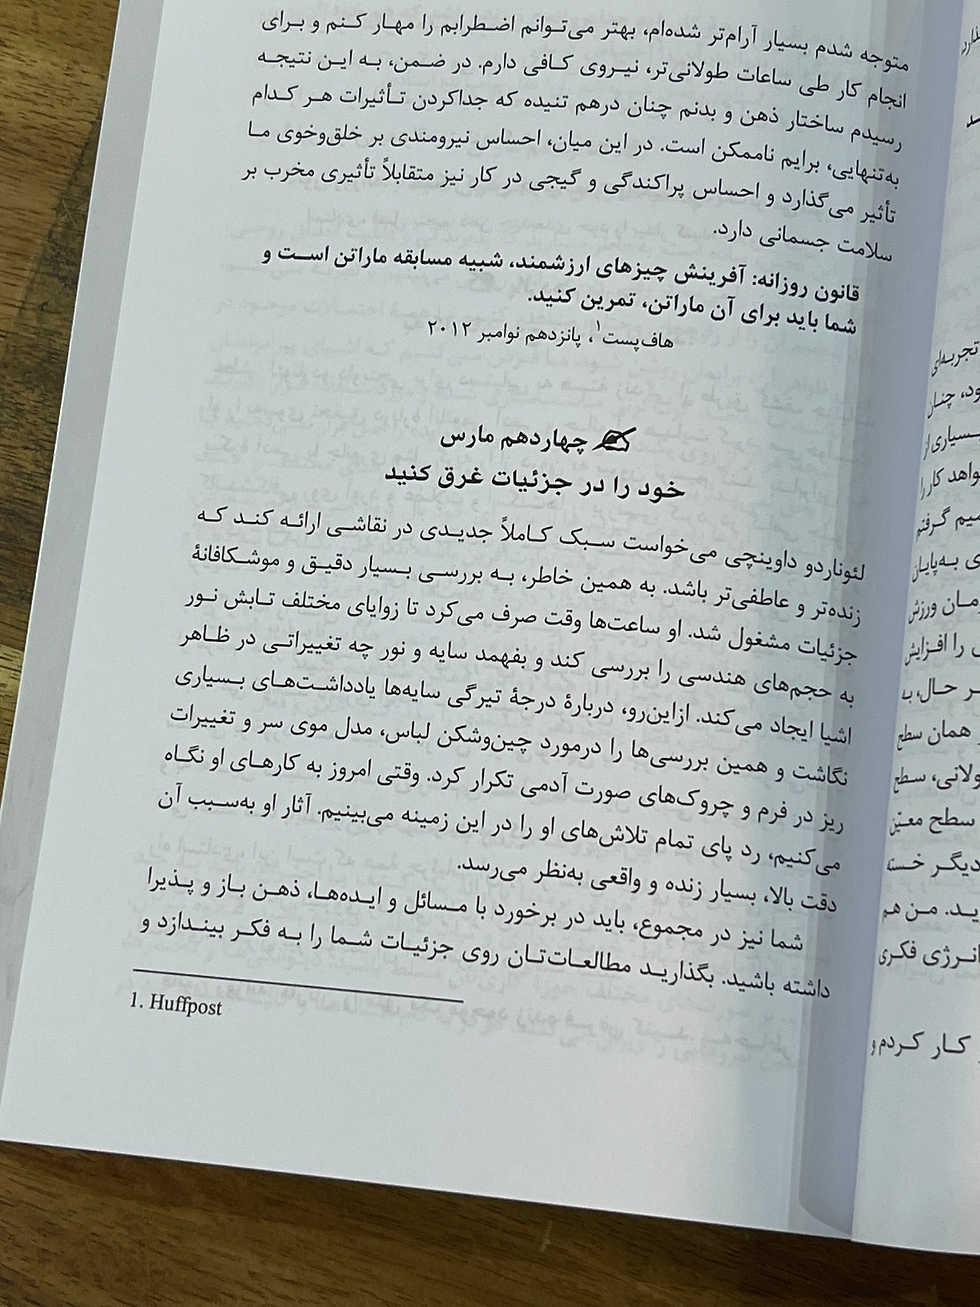 متوجه شدم بسیار آرام‌تر شده‌ام، بهتر می‌توانم اضطرابم را مهار کنم و برای
انجام کار طی ساعات طولانی‌تر، نیروی کافی دارم. در ضمن، به این نتیجه
رسیدم ساختار ذهن و بدنم چنان درهم تنیده که جداکردن تأثیرات هر کدام
به‌تنهایی، برایم ناممکن است. در این میان، احساس نیرومندی بر خلق‌وخوی ما
تأثیر می‌گذارد و احساس پراکندگی و گیجی در کار نیز متقابلاً تأثیری مخرب بر
سلامت جسمانی دارد.
قانون روزانه: آفرینش چیزهای ارزشمند، شبیه مسابقه ماراتن است و
شما باید برای آن ماراتن، تمرین کنید.
هاف‌پست۱، پانزدهم نوامبر ۲۰۱۲
چهاردهم مارس
خود را در جزئیات غرق کنید
لئوناردو داوینچی می‌خواست سبک کاملاً جدیدی در نقاشی ارائه کند که
زنده‌تر و عاطفی‌تر باشد. به همین خاطر، به بررسی بسیار دقیق و موشکافانهٔ
جزئیات مشغول شد. او ساعت‌ها وقت صرف می‌کرد تا زوایای مختلف تابش نور
به حجم‌های هندسی را بررسی کند و بفهمد سایه و نور چه تغییراتی در ظاهر
اشیا ایجاد می‌کند. ازاین‌رو، دربارهٔ درجهٔ تیرگی سایه‌ها یادداشت‌های بسیاری
نگاشت و همین بررسی‌ها را درمورد چین‌وشکن لباس، مدل موی سر و تغییرات
ریز در فرم و چروک‌های صورت آدمی تکرار کرد. وقتی امروز به کارهای او نگاه
می‌کنیم، رد پای تمام تلاش‌های او را در این زمینه می‌بینیم. آثار او به‌سبب آن
دقت بالا، بسیار زنده و واقعی به‌نظر می‌رسد.
شما نیز در مجموع، باید در برخورد با مسائل و ایده‌ها، ذهن باز و پذیرا
داشته باشید. بگذارید مطالعات‌تان روی جزئیات شما را به فکر بیندازد و
1. Huffpost
تجربه‌ای
ود، چنان
بسیاری از
واهد کار را
میم گرفتم
ی به‌پایان
مان ورزش
ی را افزایش
همان سطح
ولانی، سطح
سطح معین
دیگر خسته
ید. من هم
انرژی فکری
کار کردم و